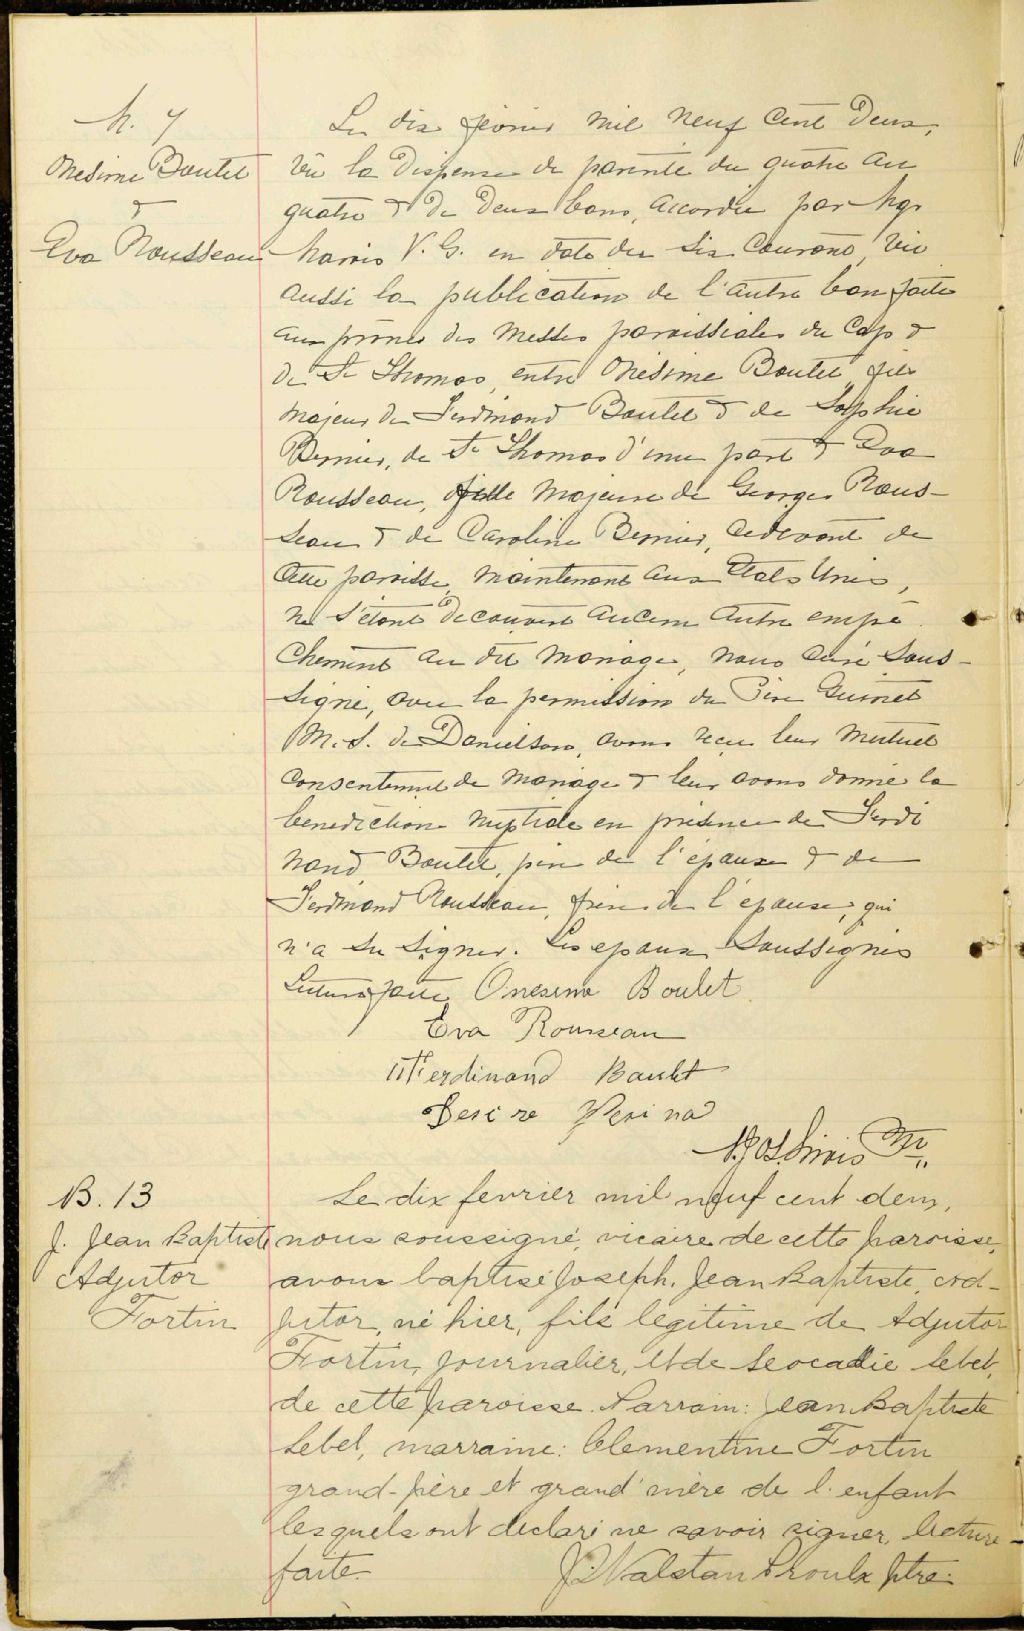 M. 7
Onésime Boulet
&
Eva Rousseau
Le dix février mil neuf cent deux,
Vu la dispense de parenté du quatre au
quatre & de deux bans, accordée par Mgr
Marois V. G. en date du six courant, Vu
aussi la publication de l'autre ban faite
aux prônes des messes paroissiales du Cap &
de St Thomas, entre Onésime Boulet, fils
majeur de Ferdinand Boulet & de Sophie
Bernier, de St Thomas d'une part & Eva
Rousseau, fille majeure de Georges Rous-
seau & de Caroline Bernier, ci devant de
cette paroisse, maintenant aux Etats Unis,
ne s'étant découvert aucun autre empê
chement au dit mariage, nous curé sous-
signé, avec la permission du Père Guinet
M. S. de Danielson, avons reçu leur mutuel
consentement de mariage & leur avons donné la
bénédiction nuptiale en présence de Ferdi
nand Boulet, père de l'époux & de
Ferdinand Rousseau, frère de l'épouse, qui
n'a su signer. Les epoux soussignés
Lecture faite Onesime Boulet
Eva Rousseau
Ferdinand Boulet
Desire
Sirois Ptre
B. 13
J. Jean Baptiste
Adjutor
Fortin
Le dix fevrier mil neuf cent deux,
nous soussigné, vicaire de cette paroisse,
avons baptisé Joseph, Jean Baptiste, Ad-
jutor, né hier, fils légitime de Adjutor
Fortin, journalier, et de Leocadie Lebel,
de cette paroisse. Parrain: Jean Baptiste
Lebel, marraine: Clementine Fortin
grand-père et grand'mère de l'enfant
lesquels ont déclaré ne savoir signer, lecture
faite. J. Walstan Proulx Ptre.